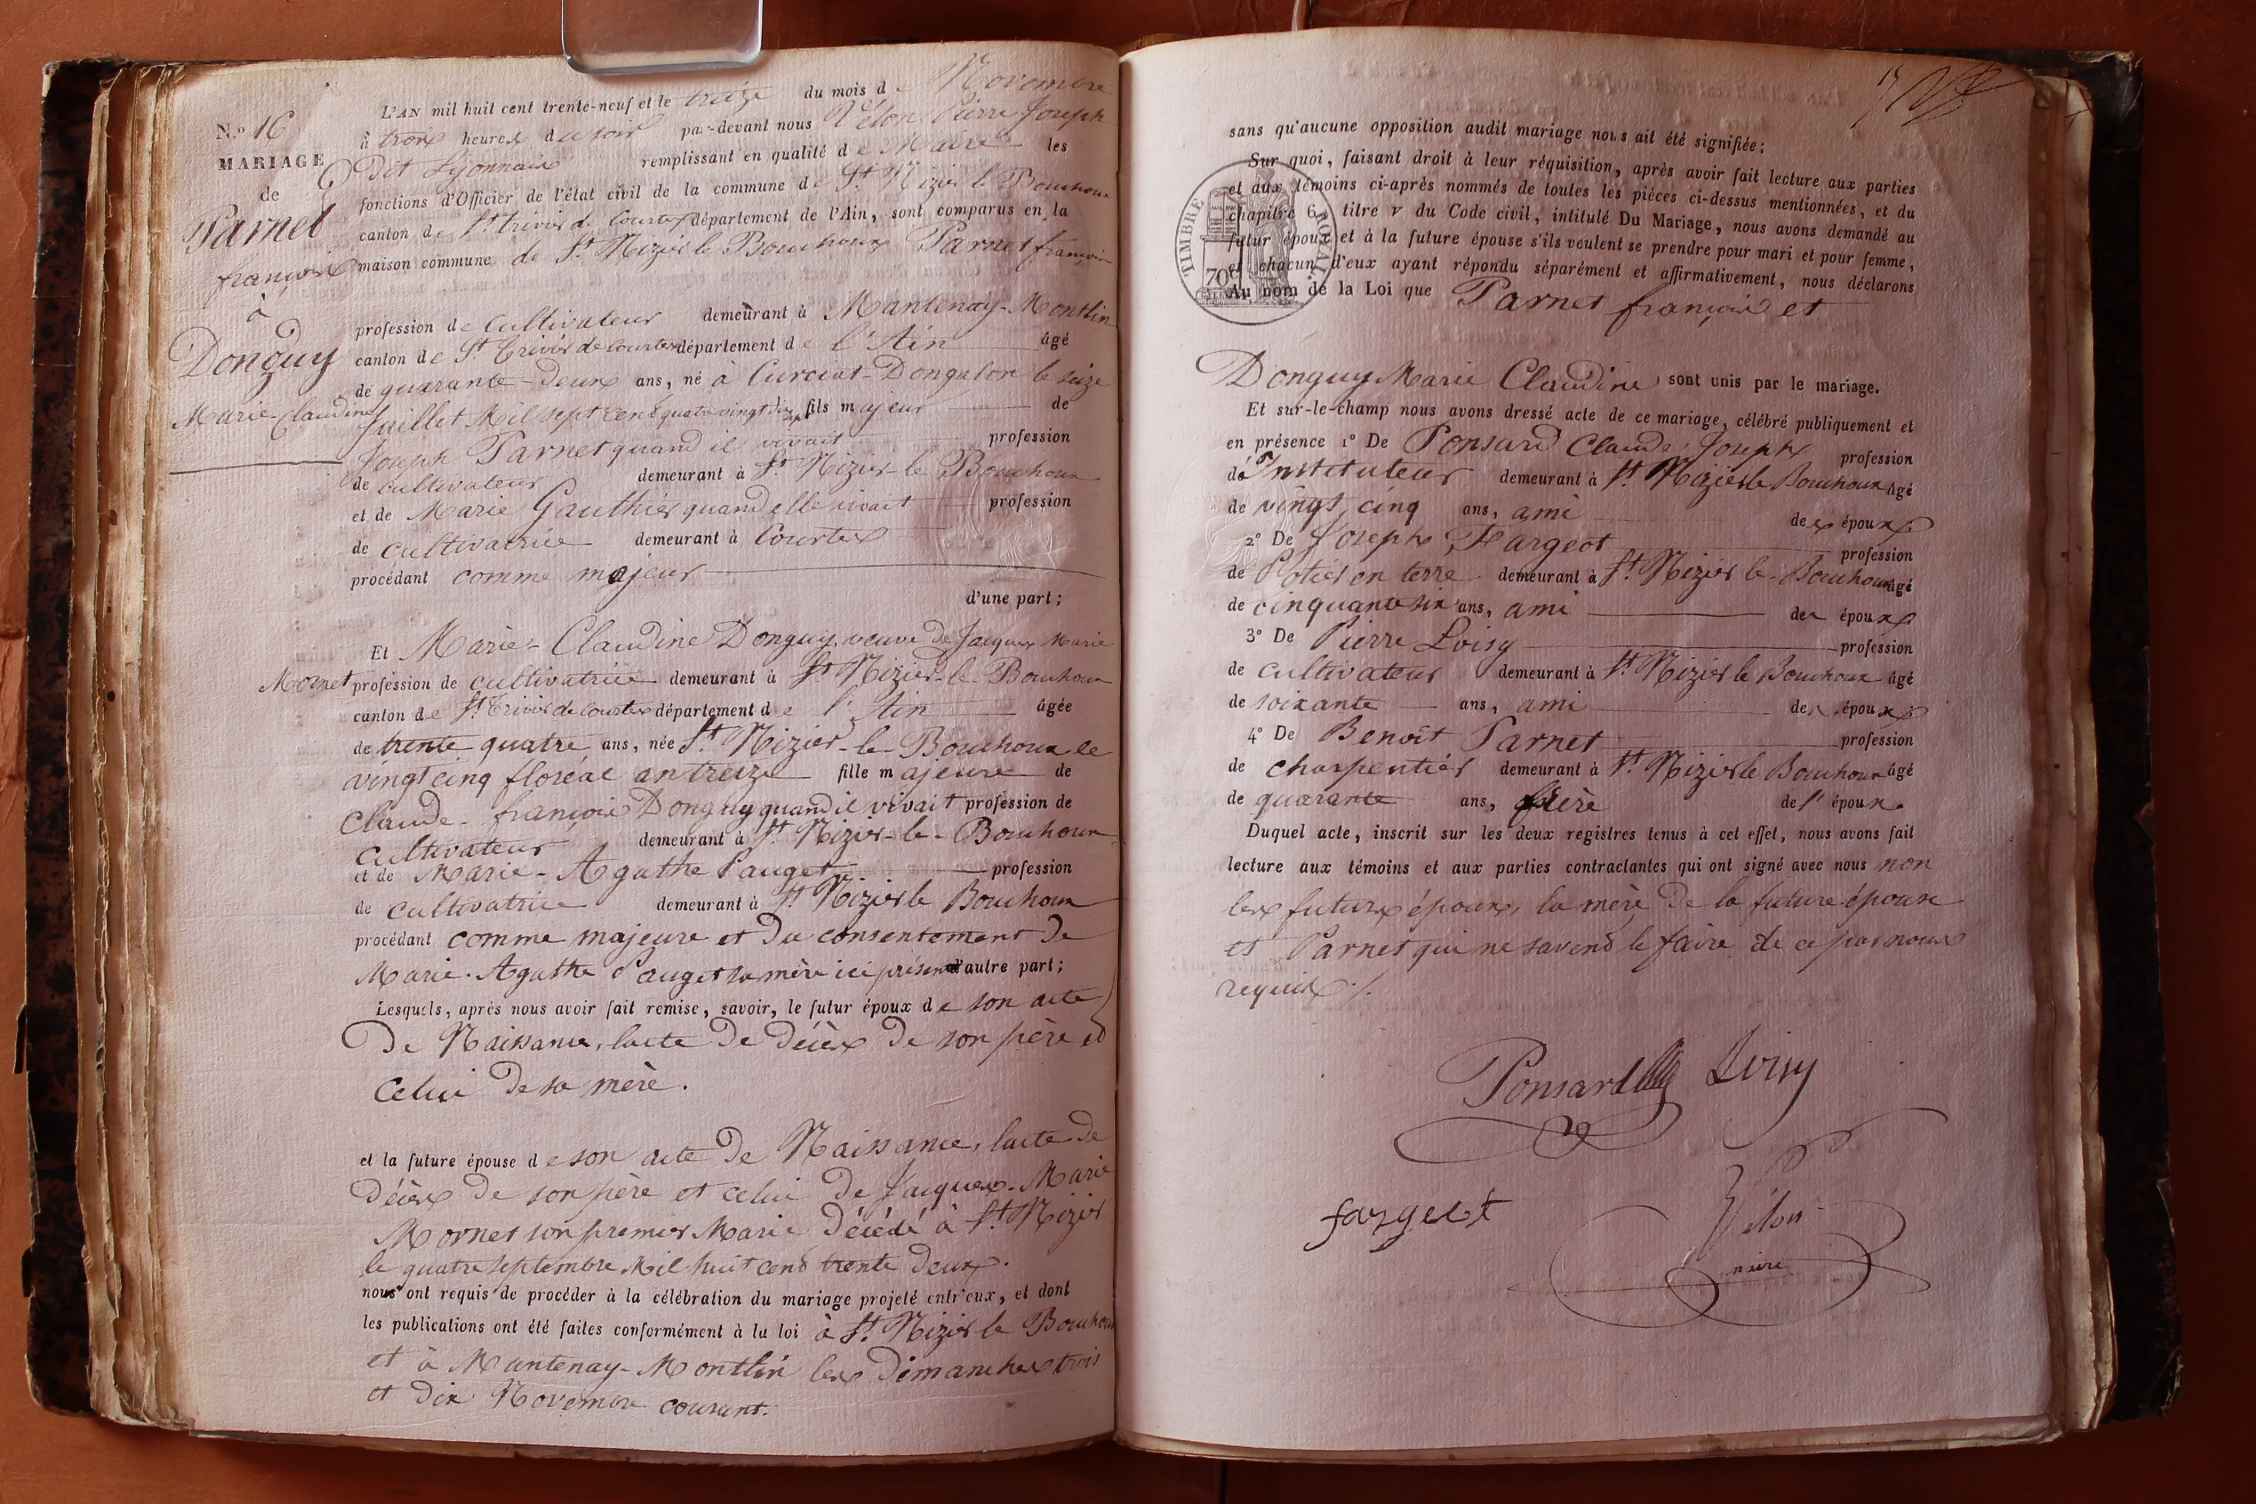 N.º 16
MARIAGE
de
Parnet
françois
à
Donguy
Marie-Claudine
L'AN mil huit cent trente-neuf et le treize du mois de Novembre
à trois heures du soir par-devant nous Vélon Pierre Joseph
dit Lyonnais remplissant en qualité de Maire les
fonctions d'Officier de l'état civil de la commune de St Nizier le Bouchoux
canton de St trivier de Courtes département de l'Ain, sont comparus en la
maison commune de St Nizier le Bouchoux Parnet françois
profession de Cultivateur demeurant à Mantenay-Montlin
canton de St Trivier de Courtes département de l'Ain âgé
de quarante-deux ans, né à Curciat-Dongalon le seize
Juillet Mil sept cent quatre vingt dix sept fils majeur de
Joseph Parnet quand il vivait profession
de cultivateur demeurant à St Nizier le Bouchoux
et de Marie Gauthier quand elle vivait profession
de cultivatrice demeurant à Courtes
procédant comme majeur
d'une part;
Et Marie-Claudine Donguy veuve de Jacques Marie
Mornet profession de cultivatrice demeurant à St Nizier-le-Bouchoux
canton de St Trivier de Courtes département de l'Ain âgée
de trente quatre ans, née St Nizier-le-Bouchoux le
vingt cinq floréal an treize fille majeure de
Claude-françois Donguy quand il vivait profession de
cultivateur demeurant à St Nizier-le-Bouchoux
et de Marie-Agathe Pauget profession
de cultivatrice demeurant à St Nizier le Bouchoux
procédant comme majeure et du consentement de
Marie-Agathe Pauget sa mère ici présente d'autre part;
Lesquels, après nous avoir fait remise, savoir, le futur époux de son acte
De Naissance, l'acte de décès de son père et
celui de sa mère.
et la future épouse de son acte de Naissance, l'acte de
décès de son père et celui de Jacques-Marie
Mornet son premier Marie décédé à St Nizier
le quatre septembre Mil huit cent trente deux.
nous ont requis de procéder à la célébration du mariage projeté entr'eux, et dont
les publications ont été faites conformément à la loi à St Nizier le Bouchoux
et à Mantenay-Montlin les Dimanches trois
et dix Novembre courant.
17
sans qu'aucune opposition audit mariage nous ait été signifiée;
Sur quoi, faisant droit à leur réquisition, après avoir fait lecture aux parties
et aux témoins ci-après nommés de toutes les pièces ci-dessus mentionnées, et du
chapitre 6 titre V du Code civil, intitulé Du Mariage, nous avons demandé au
futur époux et à la future épouse s'ils veulent se prendre pour mari et pour femme,
et chacun d'eux ayant répondu séparément et affirmativement, nous déclarons
Au nom de la Loi que Parnet françois et
TIMBRE ROYAL
70c
Donguy Marie Claudine sont unis par le mariage.
Et sur-le-champ nous avons dressé acte de ce mariage, célébré publiquement et
en présence 1º De Ponsard Claude Joseph profession
de Instituteur demeurant à St Nizier le Bouchoux âgé
de vingt cinq ans, ami des époux
2º De Joseph Fargeot profession
de Potier en terre demeurant à St Nizier le Bouchoux âgé
de cinquante six ans, ami des époux
3º De Pierre Loisy profession
de cultivateur demeurant à St Nizier le Bouchoux âgé
de soixante ans, ami des époux
4º De Benoît Parnet profession
de charpentier demeurant à St Nizier le Bouchoux âgé
de quarante ans, frère de l'époux.
Duquel acte, inscrit sur les deux registres tenus à cet effet, nous avons fait
lecture aux témoins et aux parties contractantes qui ont signé avec nous non
les futurs époux, la mère de la future épouse
et Parnet qui ne savent le faire de ce par nous
requis ./.
Ponsard Loisy
fargeot
Vélon
maire